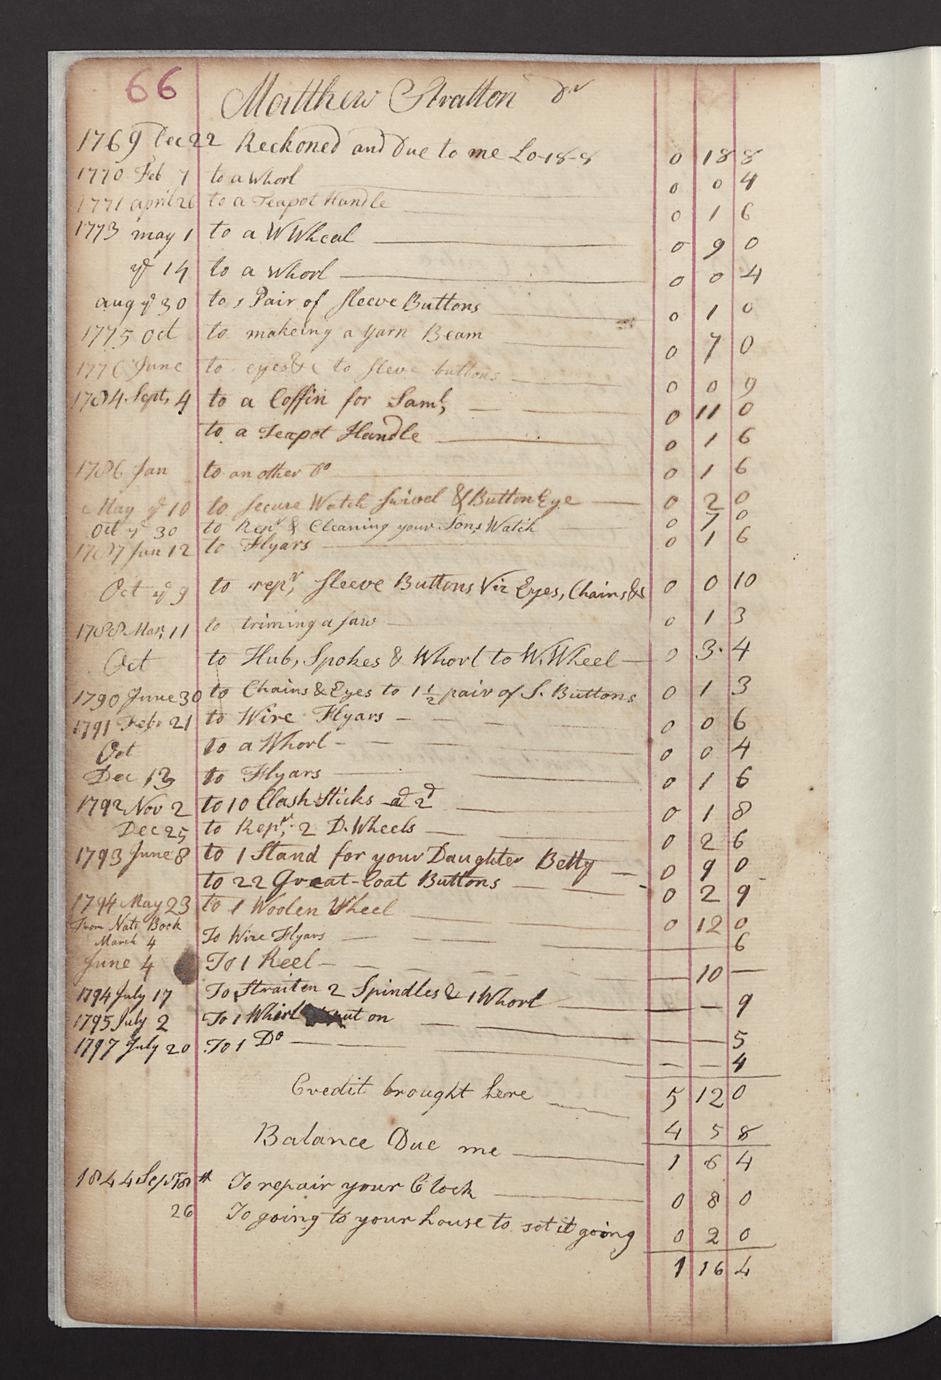 66
Matthew Stratton Dr
1769 Dec 22 Reckoned and Due to me £0-18-8 0 18 8
1770 Feb 7 to a whorl 0 0 4
1771 april 26 to a Teapot Handle 0 1 6
1773 may 1 to a W Wheal 0 9 0
ye 14 to a whorl 0 0 4
aug ye 30 to 5 Pair of Sleeve Buttons 0 1 0
1775 Oct to makeing a yarn Beam 0 7 0
1776 June to eyes &c to Sleve buttons 0 0 9
1784 Sept, 4 to a Coffin for Saml, 0 11 0
to a Teapot Handle 0 1 6
1786 Jan to another Do 0 1 6
May ye 10 to Secure Watch Swivel & Button Eye 0 2 0
Oct ye 30 to Repr & Cleaning your Sons Watch 0 7 0
1787 Jan 12 to Flyars 0 1 6
Oct ye 9 to repr, Sleeve Buttons Viz Eyes, Chains &c 0 0 10
1788 Mar, 11 to triming a saw 0 1 3
Oct to Hub, Spokes & Whorl to W. Wheel 0 3 4
1790 June 30 to Chains & Eyes to 1 1/2 pair of S. Buttons 0 1 3
1791 Febr 21 to Wire Flyars 0 0 6
Oct to a Whorl 0 0 4
Dec 13 to Flyars 0 1 6
1792 Nov 2 to 10 Clash Sticks ad 2d 0 1 8
Dec 25 to Repr, 2 D. Wheels 0 2 6
1793 June 8 to 1 Stand for your Daughter Betty 0 9 0
to 22 Great-Coat Buttons 0 2 9
1794 May 23 to 1 Woolen Wheel 0 12 0
From Nats Book
March 4 To Wire Flyars 6
June 4 To 1 Reel 10 —
1794 July 17 To Straiten 2 Spindles & 1 Whorl — — 9
1795 July 2 To 1 Whirl put on — — 5
1797 July 20 To 1 Do — — 4
Credit brought here 5 12 0
4 5 8
Balance Due me 1 6 4
1844 Sept 18 To repair your Clock 0 8 0
26 To going to your house to set it going 0 2 0
1 16 4